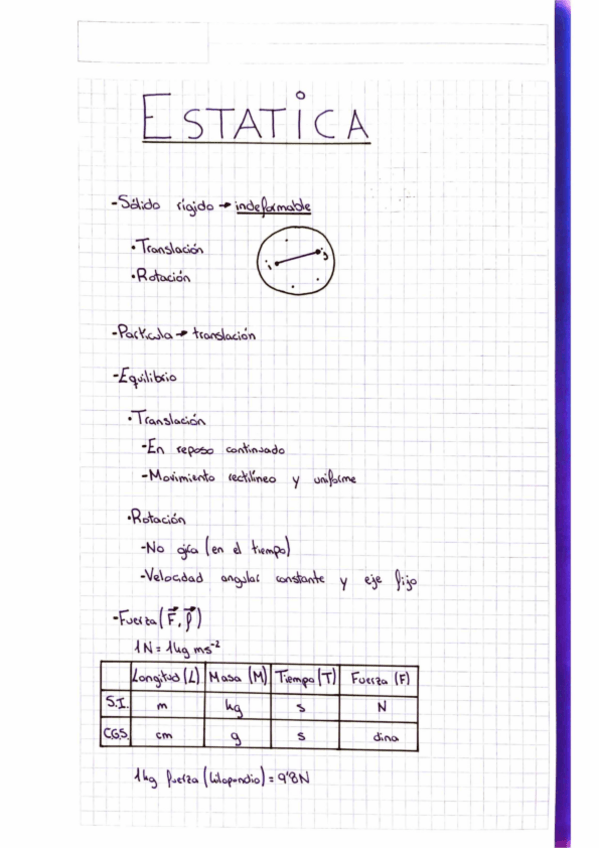 ESTATICA
-Sólido rígido → indeformable
•Translación
i j
•Rotación
-Partícula → translación
-Equilibrio
•Translación
-En reposo continuado
-Movimiento rectilíneo y uniforme
•Rotación
-No gira (en el tiempo)
-Velocidad angular constante y eje fijo
-Fuerza (F⃗, f⃗)
1N = 1kg ms⁻²
Longitud (L) Masa (M) Tiempo (T) Fuerza (F)
S.I. m kg s N
C.G.S. cm g s dina
1kg fuerza (kilopondio) = 9'8N